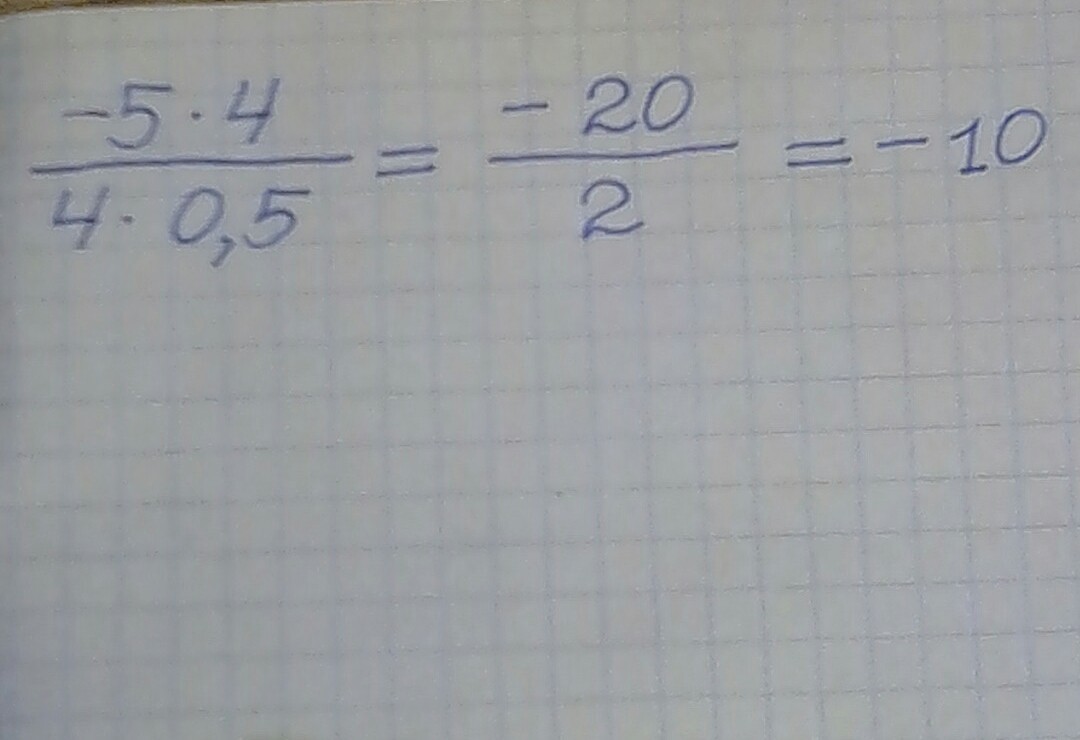 -5·4/4·0,5 = -20/2 = -10